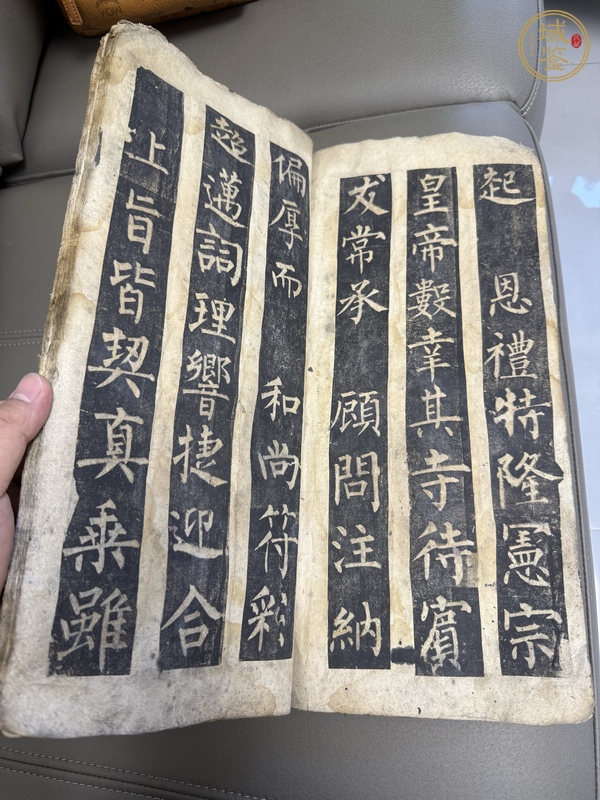 起 恩禮特隆憲宗
皇帝數幸其寺待賓
友常承 顧問注納
偏厚而 和尚符彩
超邁詞理響捷迎合
上旨皆契真乘雖
域鑒